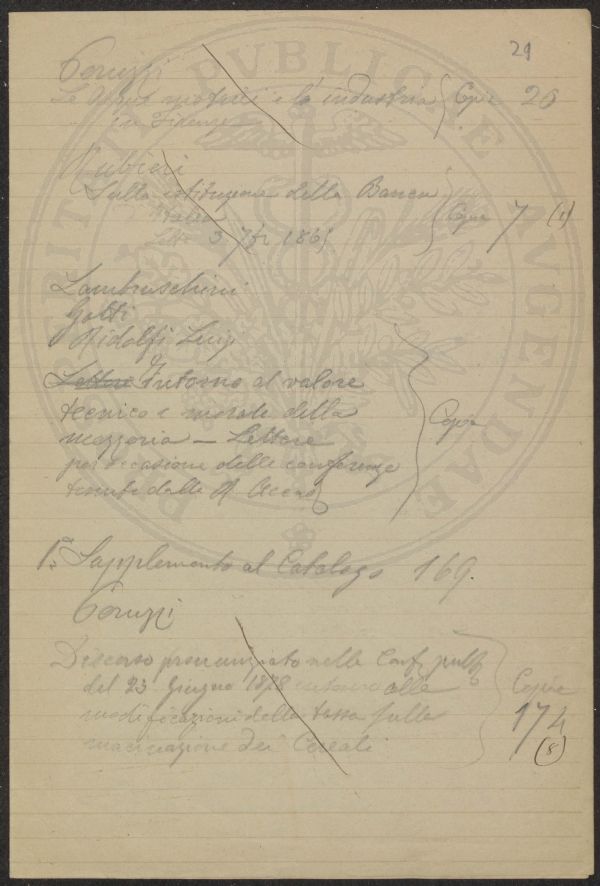 29
Peruzzi
Le acque motrici e la industria Copie 26
in Firenze
Rubieri
Sulla istituzione della Banca
Italia Copie 7 (1)
Letta 3 7br 1865
Lambruschini
Gotti
Ridolfi Luigi
Lettere Intorno al valore
tecnico e morale della
mezzeria – Lettere Copie
per occasione delle conferenze
tenute dalla R Accad
1° Supplemento al Catalogo 169.
Peruzzi
Discorso pronunziato nelle Conf. pubb
del 23 Giugno 1878 intorno alle Copie
modificazioni della tassa sulla 174
macinazione dei Cereali (8)